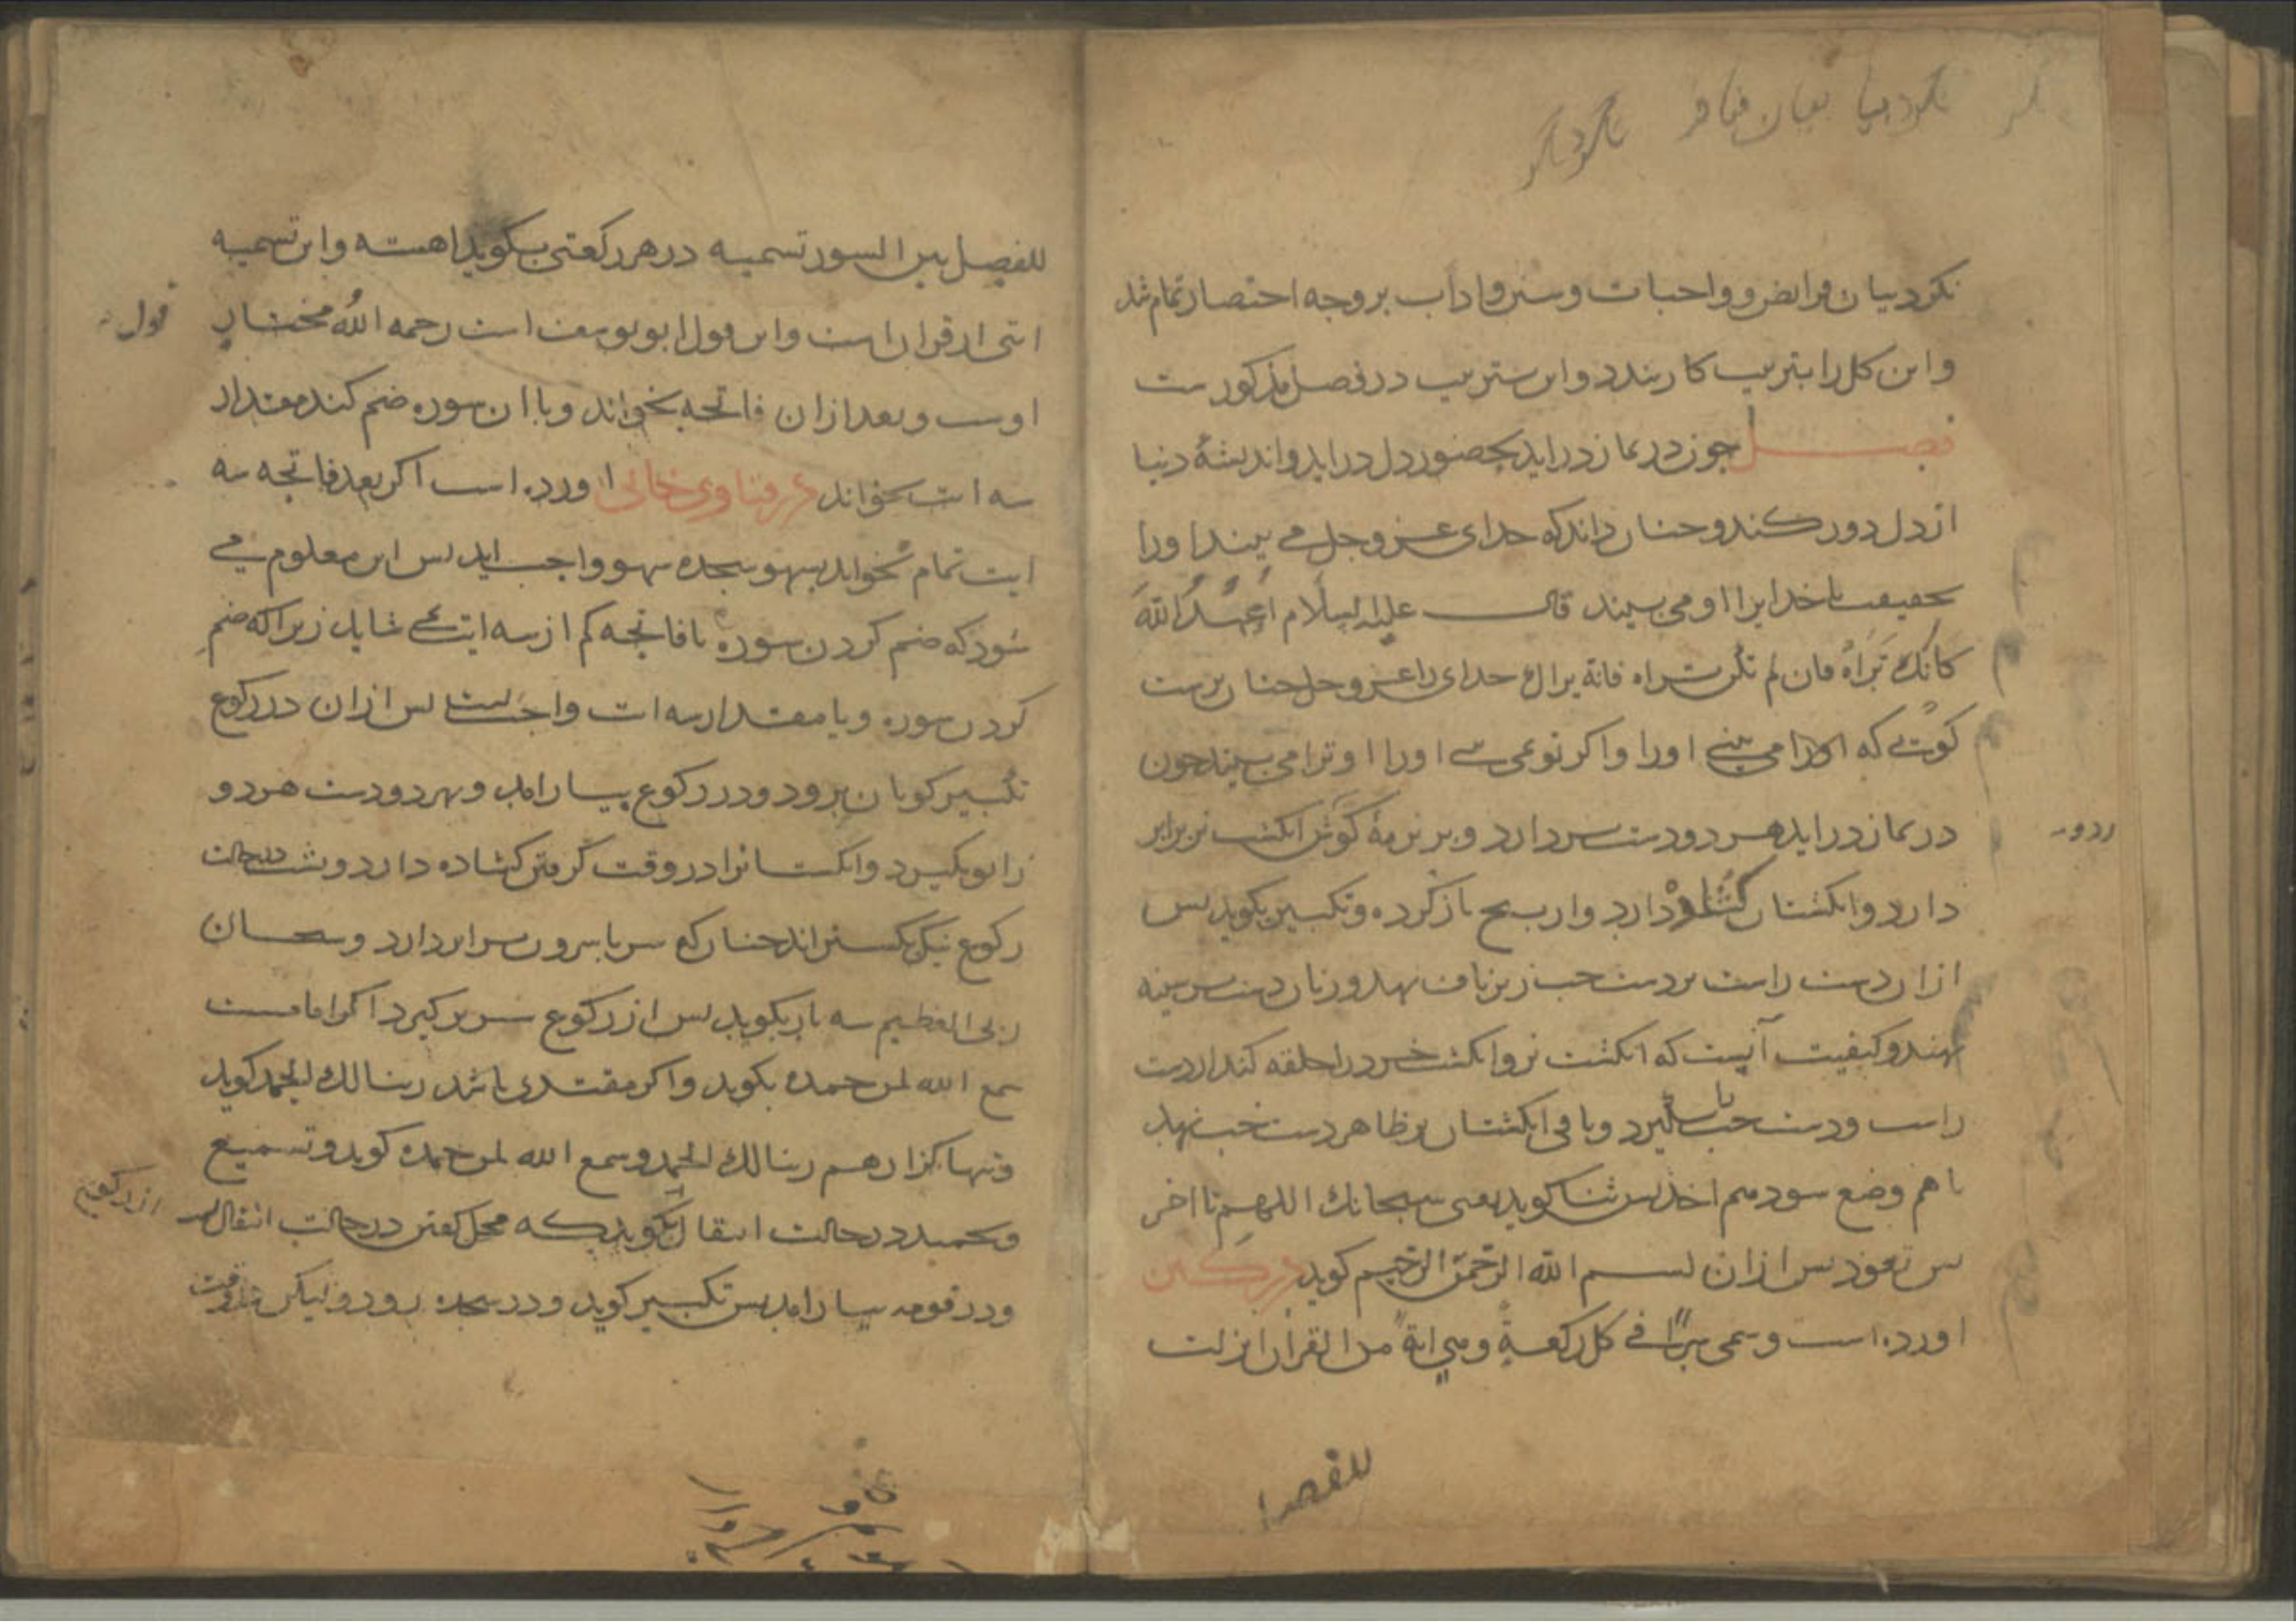 نکرد بیان فرائض و واجبات و سنن و اداب بر وجه اختصار تمام شد
و این کل را بترتیب کار بندد و این ترتیب در فصل مذکورست
فصل چون در نماز دراید بحضور دل دراید و اندیشهٔ دنیا
از دل دور کند و چنان داند که خدای عز و جل می بیند او را
بحقیقت یا خدایرا او می بیند قال علیه السلام اُعبُدُ اللهَ
کانک تَراهُ فان لم تکن تراه فانه یراك خدای را عز و جل چنان پرست
کوئی که او را می بینی او را و اکر تو نمی بینی او را او ترا می بیند چون
در نماز دراید هر دو دست بردارد و بر نرمهٔ کوش انکشت نر برابر
دارد و انکشتان کشاده دارد و از باز کرده و تکبیر بکوید پس
ازان دست راست بر دست چپ زیر ناف نهد و زنان دست بر سینه
نهند و کیفیت آنست که انکشت نر و انکشت خرد را حلقه کند از دست
راست و دست چپ بکیرد و باقی انکشتان بر ظاهر دست چپ نهد
تا هم وضع شود هم اخذ پس ثنا کوید یعنی سبحانك اللهم تا اخر
پس تعوذ پس ازان بسم الله الرحمن الرحیم کوید در کنز
اورده است و سمی سرًّا فی کل رکعةٍ و هی ایة من القران انزلت
للفصل
للفصل بین السور تسمیه در هر رکعتی بکوید اهسته و این تسمیه
ایتی از قران است و این قول ابو یوسف است رحمه الله مختار
قول
اوست و بعد ازان فاتحه بخواند و با ان سوره ضم کند مقدار
سه ایت بخواند در فتاوی خانی اورده است اکر بعد فاتحه سه
ایت تمام نخواند بسهو سجده سهو واجب اید پس این معلوم می
شود که ضم کردن سوره با فاتحه کم از سه ایت نمی شاید زیرا که ضم
کردن سوره و یا مقدار سه ایت واجبست پس ازان در رکوع
تکبیر کویان برود و در رکوع بیارامد و بهر دو دست هر دو
زانو بکیرد و انکشتانرا در وقت کرفتن کشاده دارد و پشت در حالت
رکوع نیک بکستراند چنان که سر با سرون برابر دارد و سبحان
ربی العظیم سه بار بکوید پس از رکوع سر برکیرد اکر امامست
سمع الله لمن حمده بکوید و اکر مقتدی باشد ربنا لك الحمد کوید
و تنها کزار هم ربنا لك الحمد و سمع الله لمن حمده کوید و تسمیع
و تحمید در حالت انتقال بکوید که محل کفتن در حالت انتقال
و در قومه بیارامد پس تکبیر کوید و در سجده رود و لیکن در وقت